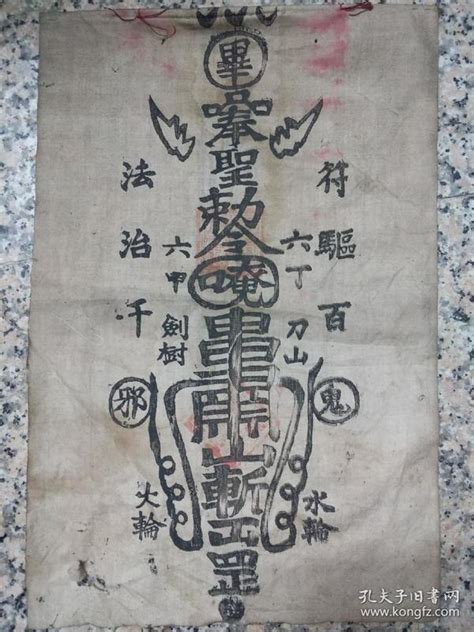 符驅百鬼
六丁刀山
水輪
畢
奉聖敕令
唵
山斬
罡
六甲劍樹
火輪
法治千邪
孔夫子旧书网
www.kongfz.com